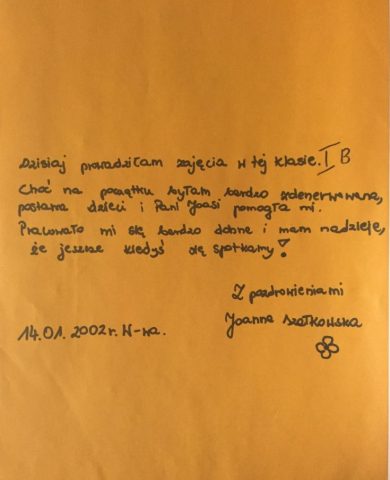 Dzisiaj prowadziłam zajęcia w tej klasie. I B
Choć na początku byłam bardzo zdenerwowana,
postawa dzieci i Pani Joasi pomogła mi.
Pracowało mi się bardzo dobrze i mam nadzieję,
że jeszcze kiedyś się spotkamy!
Z pozdrowieniami
14.01.2002r. W-wa.
Joanna Szatkowska